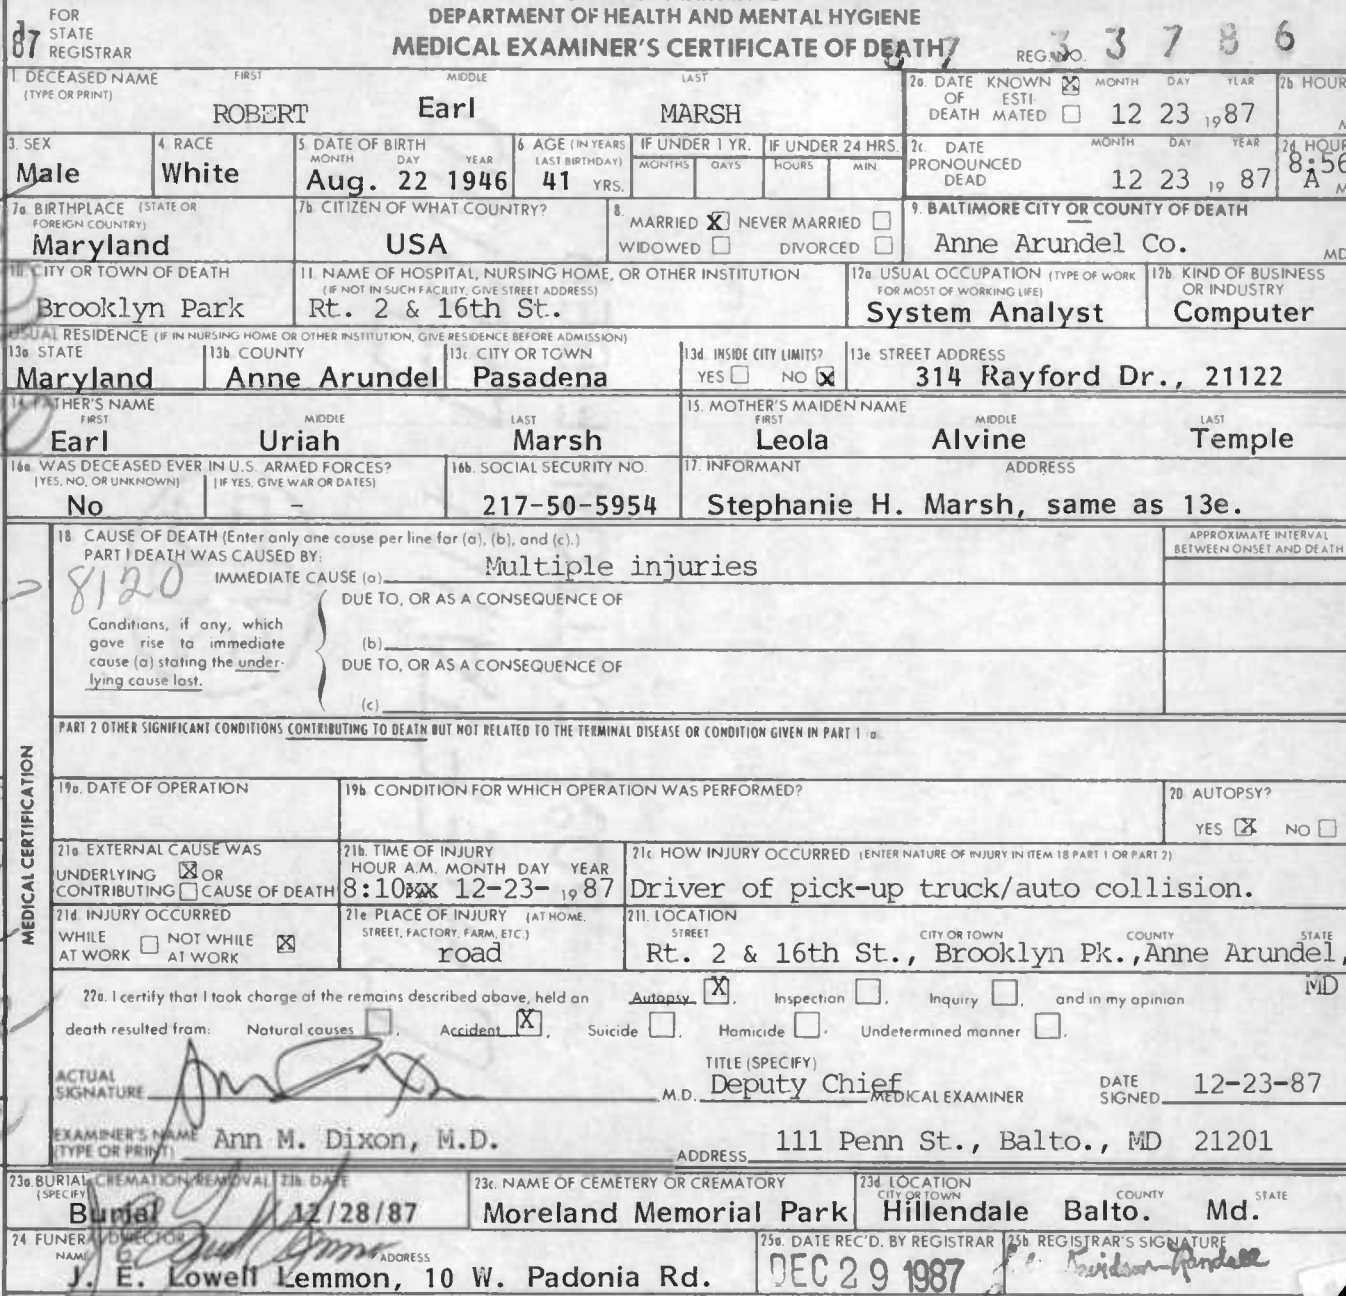 FOR
STATE
REGISTRAR
87
DEPARTMENT OF HEALTH AND MENTAL HYGIENE
MEDICAL EXAMINER'S CERTIFICATE OF DEATH
87 33786
REG. NO.
1. DECEASED NAME FIRST MIDDLE LAST
(TYPE OR PRINT)
ROBERT Earl MARSH
2a. DATE KNOWN [X] MONTH DAY YEAR 2b HOUR
OF ESTI-
DEATH MATED 12 23 1987
3. SEX 4. RACE 5. DATE OF BIRTH 6. AGE (IN YEARS IF UNDER 1 YR. IF UNDER 24 HRS.
MONTH DAY YEAR LAST BIRTHDAY) MONTHS DAYS HOURS MIN.
Male White Aug. 22 1946 41 YRS.
2c. DATE MONTH DAY YEAR 2d HOUR
PRONOUNCED 8:56
DEAD 12 23 19 87 A M
7a. BIRTHPLACE (STATE OR
FOREIGN COUNTRY)
Maryland
7b. CITIZEN OF WHAT COUNTRY?
USA
8. MARRIED X NEVER MARRIED
WIDOWED DIVORCED
9. BALTIMORE CITY OR COUNTY OF DEATH
Anne Arundel Co. MD
10. CITY OR TOWN OF DEATH
Brooklyn Park
11. NAME OF HOSPITAL, NURSING HOME, OR OTHER INSTITUTION
(IF NOT IN SUCH FACILITY, GIVE STREET ADDRESS)
Rt. 2 & 16th St.
12a USUAL OCCUPATION (TYPE OF WORK
FOR MOST OF WORKING LIFE)
System Analyst
12b. KIND OF BUSINESS
OR INDUSTRY
Computer
USUAL RESIDENCE (IF IN NURSING HOME OR OTHER INSTITUTION, GIVE RESIDENCE BEFORE ADMISSION)
13a STATE 13b COUNTY 13c. CITY OR TOWN 13d. INSIDE CITY LIMITS? 13e STREET ADDRESS
Maryland Anne Arundel Pasadena YES NO X 314 Rayford Dr., 21122
14. FATHER'S NAME
FIRST MIDDLE LAST
Earl Uriah Marsh
15. MOTHER'S MAIDEN NAME
FIRST MIDDLE LAST
Leola Alvine Temple
16a. WAS DECEASED EVER IN U.S. ARMED FORCES?
(YES, NO, OR UNKNOWN) (IF YES, GIVE WAR OR DATES)
No -
16b. SOCIAL SECURITY NO.
217-50-5954
17. INFORMANT ADDRESS
Stephanie H. Marsh, same as 13e.
18 CAUSE OF DEATH (Enter only one cause per line for (a), (b), and (c).)
PART I DEATH WAS CAUSED BY:
APPROXIMATE INTERVAL
BETWEEN ONSET AND DEATH
8120
IMMEDIATE CAUSE (a) Multiple injuries
DUE TO, OR AS A CONSEQUENCE OF
Conditions, if any, which
gave rise to immediate
cause (a) stating the under-
lying cause last.
(b)
DUE TO, OR AS A CONSEQUENCE OF
(c)
PART 2 OTHER SIGNIFICANT CONDITIONS CONTRIBUTING TO DEATH BUT NOT RELATED TO THE TERMINAL DISEASE OR CONDITION GIVEN IN PART 1 a
MEDICAL CERTIFICATION
19a. DATE OF OPERATION
19b. CONDITION FOR WHICH OPERATION WAS PERFORMED?
20. AUTOPSY?
YES X NO
21a EXTERNAL CAUSE WAS
UNDERLYING X OR
CONTRIBUTING CAUSE OF DEATH
21b. TIME OF INJURY
HOUR A.M. MONTH DAY YEAR
8:10 12-23- 1987
21c HOW INJURY OCCURRED (ENTER NATURE OF INJURY IN ITEM 18 PART 1 OR PART 2)
Driver of pick-up truck/auto collision.
21d. INJURY OCCURRED
WHILE NOT WHILE X
AT WORK AT WORK
21e PLACE OF INJURY (AT HOME,
STREET, FACTORY, FARM, ETC.)
road
21f. LOCATION
STREET CITY OR TOWN COUNTY STATE
Rt. 2 & 16th St., Brooklyn Pk., Anne Arundel,
MD
22a. I certify that I took charge of the remains described above, held an Autopsy X, Inspection, Inquiry, and in my opinion
death resulted from: Natural causes, Accident X, Suicide, Homicide, Undetermined manner.
ACTUAL
SIGNATURE M.D.
TITLE (SPECIFY)
Deputy Chief MEDICAL EXAMINER
DATE
SIGNED 12-23-87
EXAMINER'S NAME
(TYPE OR PRINT) Ann M. Dixon, M.D.
ADDRESS 111 Penn St., Balto., MD 21201
23a. BURIAL, CREMATION, REMOVAL
(SPECIFY)
Burial
23b. DATE
12/28/87
23c. NAME OF CEMETERY OR CREMATORY
Moreland Memorial Park
23d LOCATION
CITY OR TOWN COUNTY STATE
Hillendale Balto. Md.
24 FUNERAL DIRECTOR
NAME ADDRESS
J. E. Lowell Lemmon, 10 W. Padonia Rd.
25a. DATE REC'D. BY REGISTRAR
DEC 29 1987
25b. REGISTRAR'S SIGNATURE